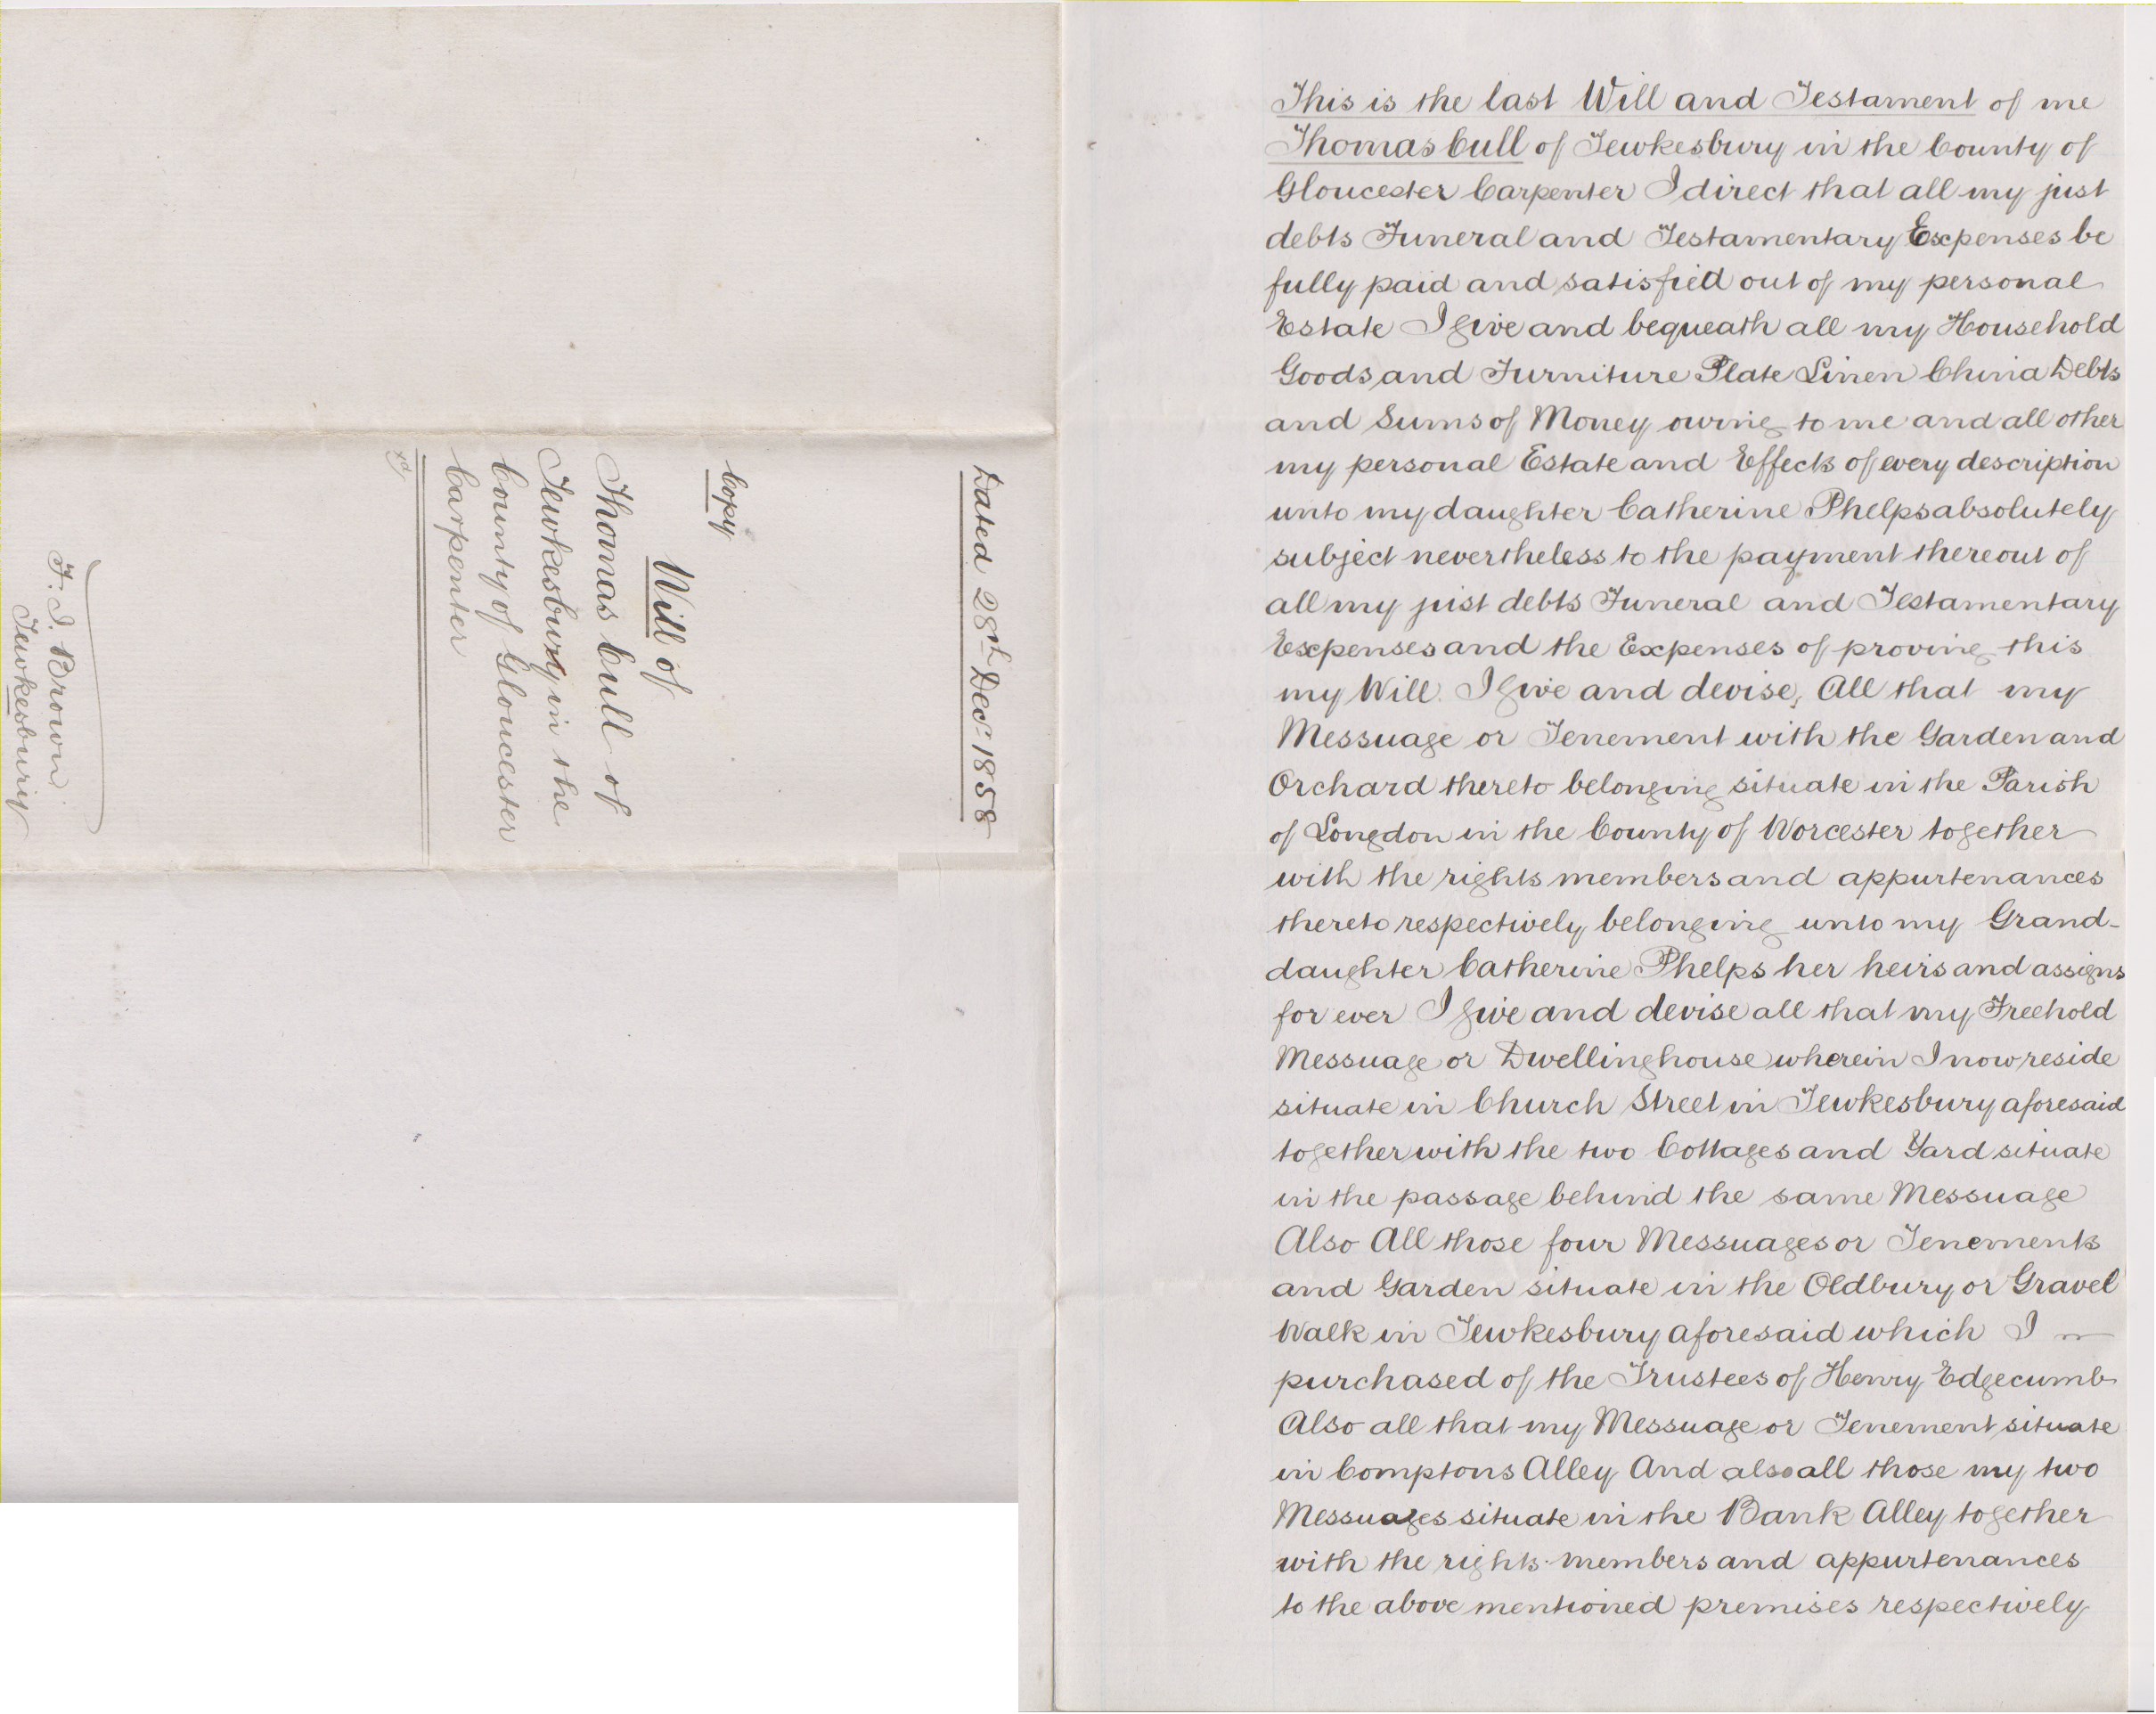 Dated 28th Decr 1858
Copy
Will of
Thomas Cull of
Tewkesbury in the
County of Gloucester
Carpenter
F. I. Brown
Tewkesbury
This is the last Will and Testament of me
Thomas Cull of Tewkesbury in the County of
Gloucester Carpenter I direct that all my just
debts Funeral and Testamentary Expenses be
fully paid and satisfied out of my personal
Estate I give and bequeath all my Household
Goods and Furniture Plate Linen China Debts
and Sums of Money owing to me and all other
my personal Estate and Effects of every description
unto my daughter Catherine Phelps absolutely
subject nevertheless to the payment thereout of
all my just debts Funeral and Testamentary
Expenses and the Expenses of proving this
my Will. I give and devise, All that my
Messuage or Tenement with the Garden and
Orchard thereto belonging situate in the Parish
of Longdon in the County of Worcester together
with the rights members and appurtenances
thereto respectively belonging unto my Grand-
daughter Catherine Phelps her heirs and assigns
for ever I give and devise all that my Freehold
Messuage or Dwellinghouse wherein I now reside
situate in Church Street in Tewkesbury aforesaid
together with the two Cottages and Yard situate
in the passage behind the same Messuage
Also All those four Messuages or Tenements
and Garden situate in the Oldbury or Gravel
Walk in Tewkesbury aforesaid which I
purchased of the Trustees of Henry Edgecumb
Also all that my Messuage or Tenement situate
in Comptons Alley And also all those my two
Messuages situate in the Bank Alley together
with the rights members and appurtenances
to the above mentioned premises respectively